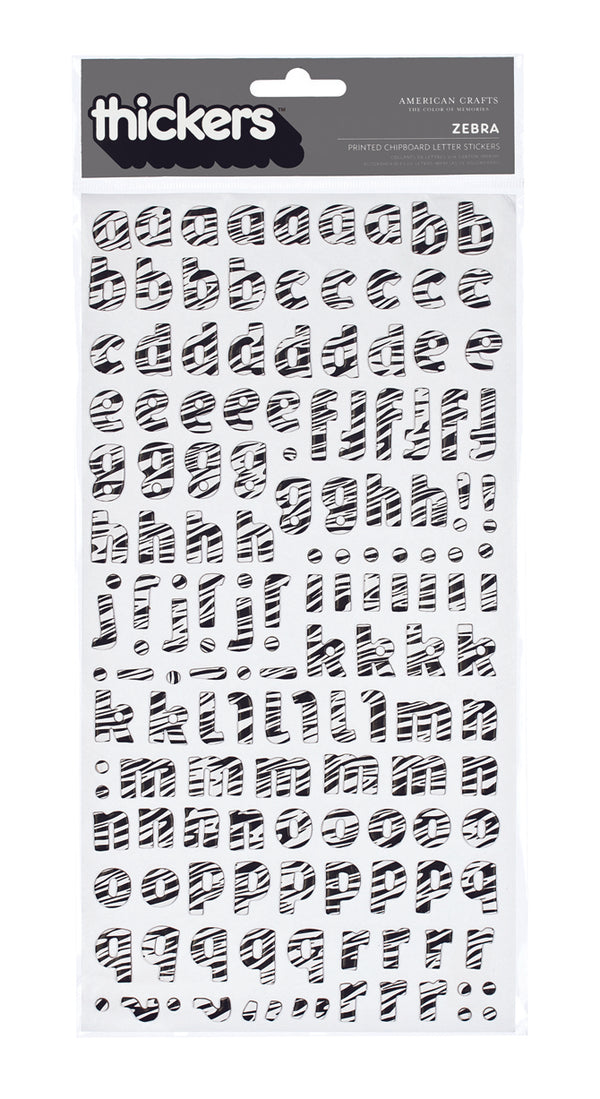 thickers™
AMERICAN CRAFTS
THE COLOR OF MEMORIES
ZEBRA
PRINTED CHIPBOARD LETTER STICKERS
a a a a a a a b b
b b b b c c c c c
c d d d d d d e e
e e e e e f f f f f
g g g g .
g g h h ! !
h h h h
j ! j ! j !
i i i i i i i
k k k k
k k l l l l l m n
: m m m m m n n
n n n n o o o o o
o o p p p p p p q
q q q q q r r r r
r r r :